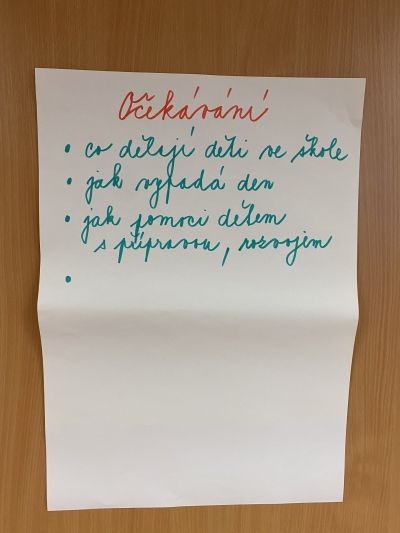 Očekávání
• co dělají děti ve škole
• jak vypadá den
• jak pomoci dětem
s přípravou, rozvojem
•